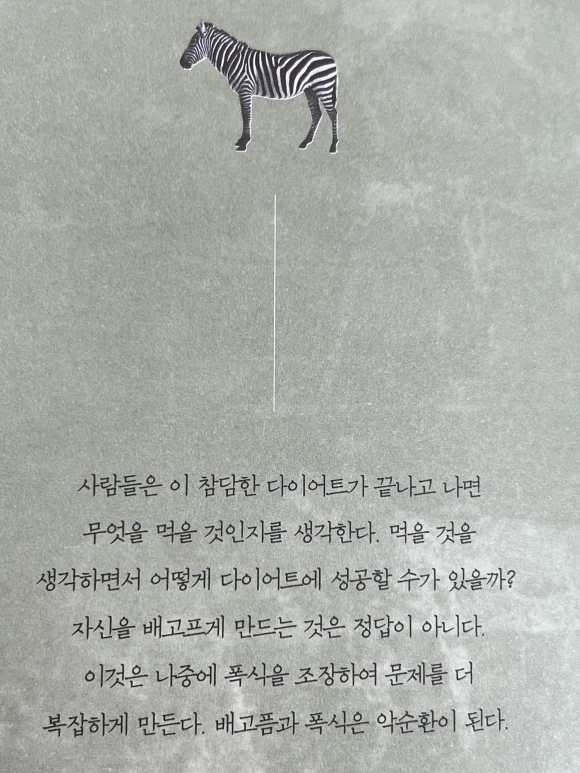 사람들은 이 참담한 다이어트가 끝나고 나면
무엇을 먹을 것인지를 생각한다. 먹을 것을
생각하면서 어떻게 다이어트에 성공할 수가 있을까?
자신을 배고프게 만드는 것은 정답이 아니다.
이것은 나중에 폭식을 조장하여 문제를 더
복잡하게 만든다. 배고픔과 폭식은 악순환이 된다.